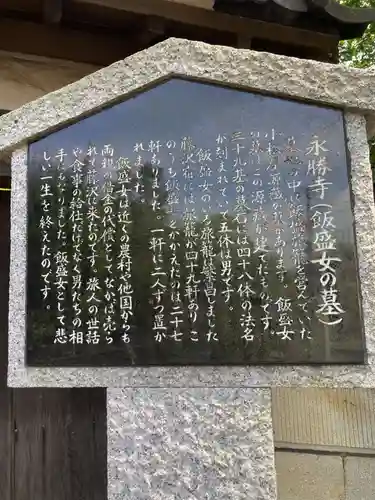 永勝寺(飯盛女の墓)
墓地の中に
旅籠を営んでいた
小松屋
の墓があります。飯盛女
の墓はこの源蔵が建てたものです。
三十九基の墓石には四十八体の法名
が刻まれていて五体は男です。
飯盛女のいる旅籠は繁昌しました
藤沢宿には旅籠が四十九軒あり こ
のうち飯盛女をかかえたのは二十七
軒ありました。一軒に二人ずつ置か
れました。
飯盛女は近くの農村や他国からも
両親の借金の代償として なかば売ら
れて藤沢に来たのです。旅人の世話
や食事の給仕だけでなく男たちの相
手にもなりました。飯盛女として悲
しい一生を終えたのです。